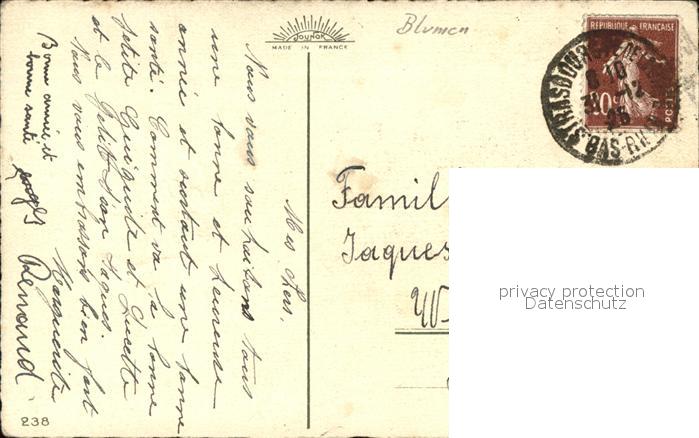 Mes chers,
Nous vous souhaitons tous
une bonne et heureuse
année et surtout une bonne
santé. Comment va la bonne
petite et Lucette
et le petit Jean Jaques.
Nous vous embrassons bien fort
Marguerite
Renaud
Bonne année et
bonne santé
JOUNOK
MADE IN FRANCE
Blumen
REPUBLIQUE FRANÇAISE
POSTES
STRASBOURG
BAS-RHIN
Famil
Jaques
W
privacy protection
Datenschutz
238